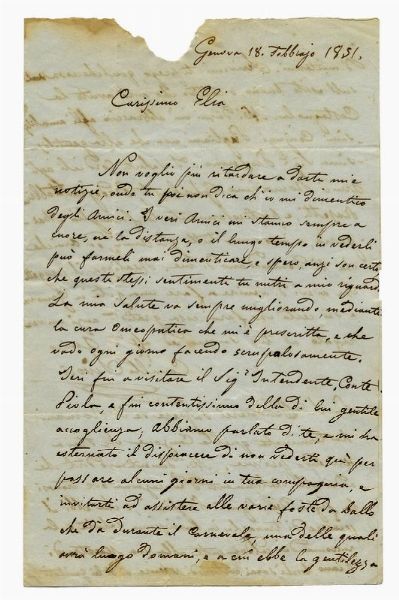 Genova 18. Febbrajo 1851.
Carissimo Elia
Non voglio più ritardare a darti mie
notizie, onde tu poi non dica ch'io mi dimentico
degli Amici. I veri Amici mi stanno sempre a
cuore, né la distanza, o il lungo tempo in vederli
può farmeli mai dimenticare, e spero, anzi son certo
che questi stessi sentimenti tu nutri a mio riguardo
La mia salute va sempre migliorando, mediante
la cura omeopatica che mi è prescritta, e che
vado ogni giorno facendo scrupolosamente.
Jeri fui a visitare il Sigr Intendente, Conte
Piola, e fui contentissimo della di lui gentile
accoglienza; abbiamo parlato di te, e mi ha
esternato il dispiacere di non vederti qui per
passare alcuni giorni in tua compagnia, e
invitarti ad assistere alle varie feste da ballo
che dà durante il carnevale, una delle quali
avrà luogo domani, e a cui ebbe la gentilezza